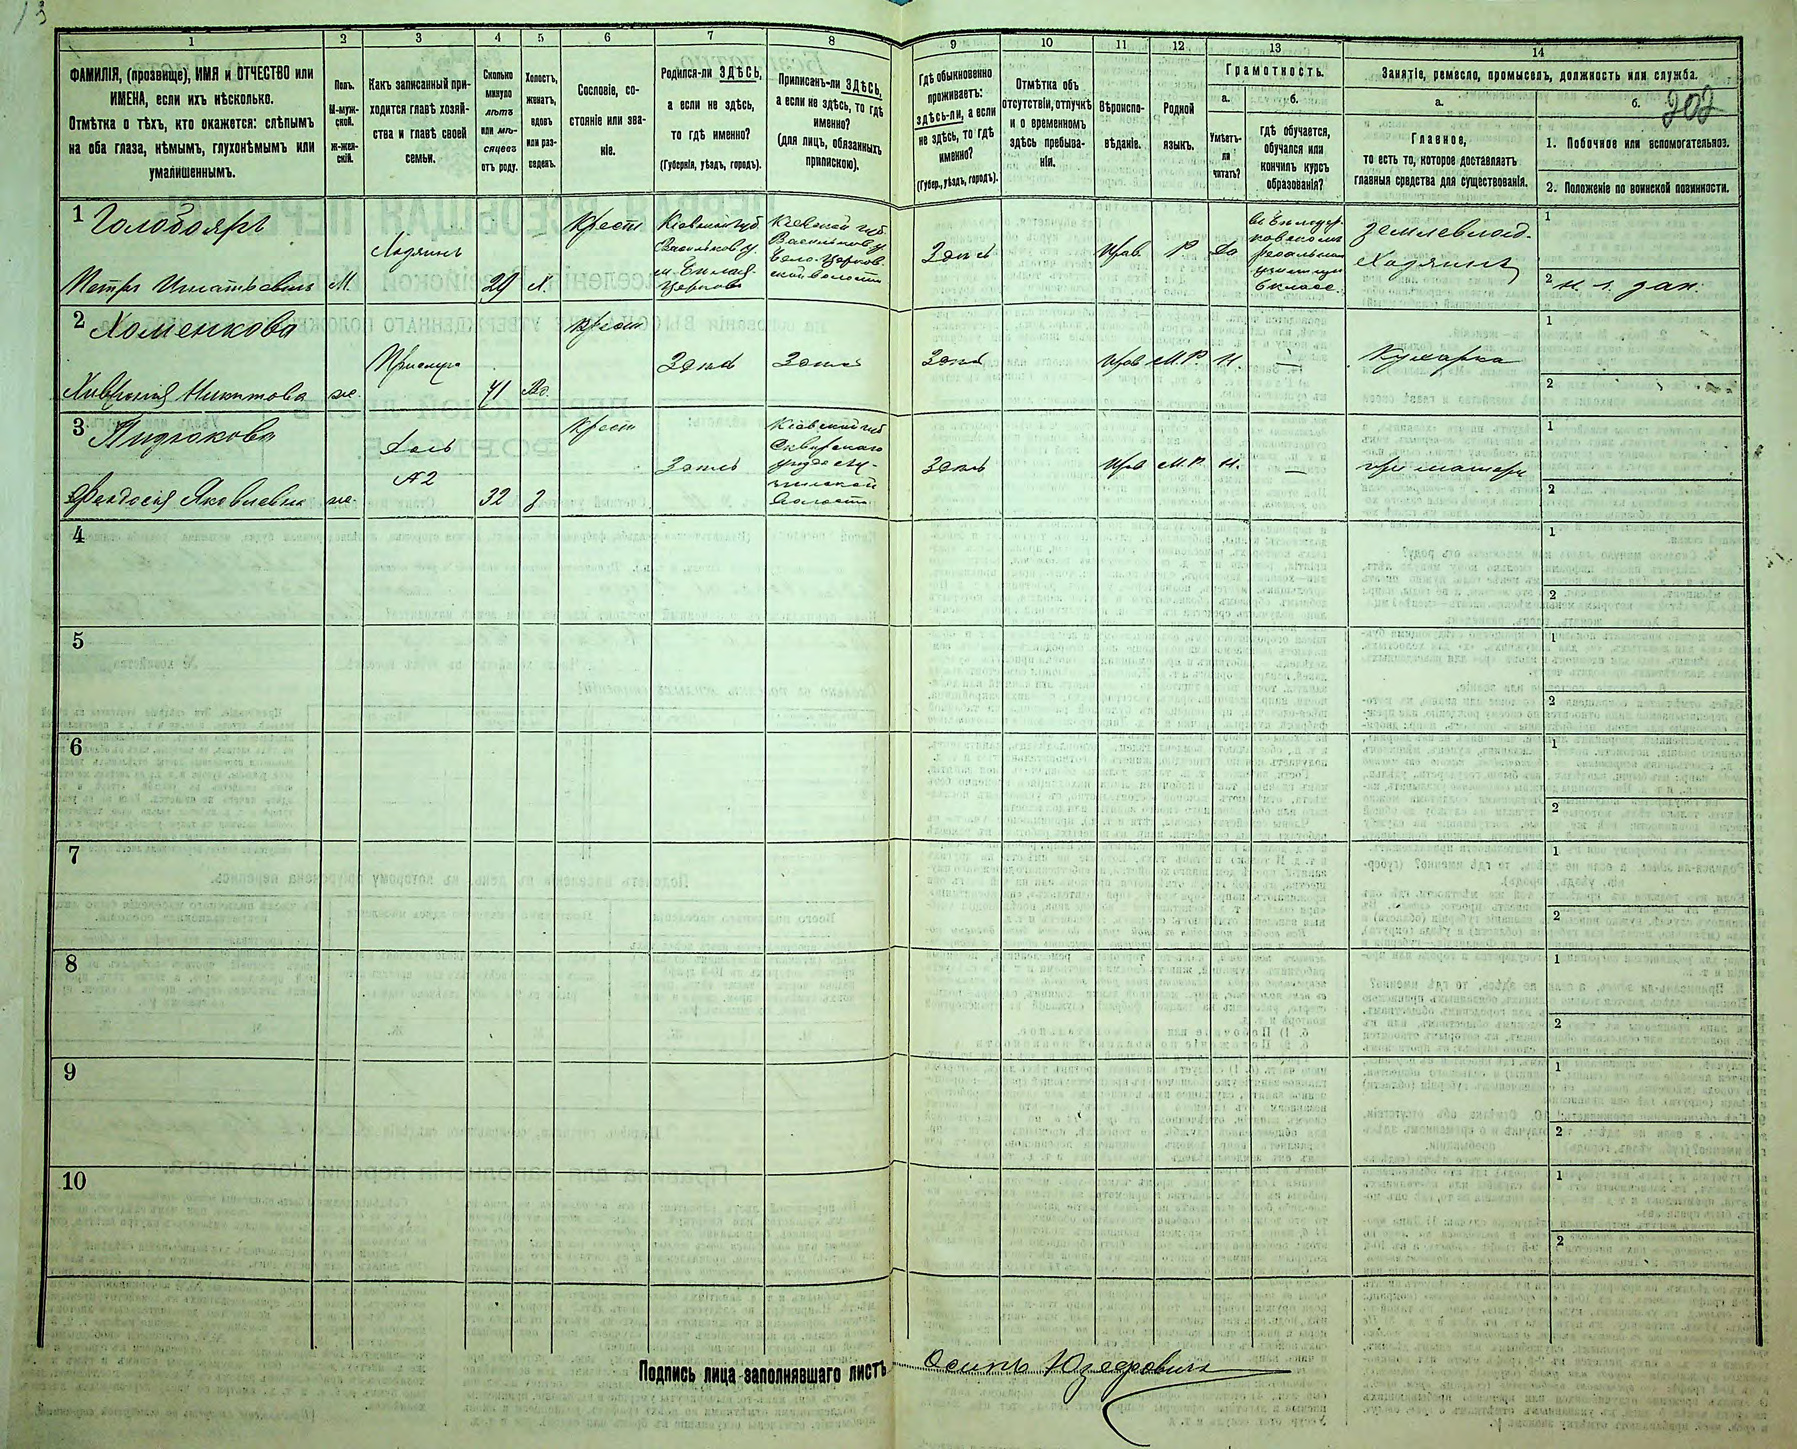 202
1 2 3 4 5 6 7 8 9 10 11 12 13 14
ФАМИЛІЯ, (прозвище), ИМЯ и ОТЧЕСТВО или
ИМЕНА, если ихъ нѣсколько.
Отмѣтка о тѣхъ, кто окажется: слѣпымъ
на оба глаза, нѣмымъ, глухонѣмымъ или
умалишеннымъ.
Полъ.
М-муж-
ской.
Ж-жен-
скій.
Какъ записанный при-
ходится главѣ хозяй-
ства и главѣ своей
семьи.
Сколько
минуло
лѣтъ
или мѣ-
сяцевъ
отъ роду.
Холостъ,
женатъ,
вдовъ
или раз-
веденъ.
Сословіе, со-
стояніе или зва-
ніе.
Родился-ли ЗДѢСЬ,
а если не здѣсь,
то гдѣ именно?
(Губернія, уѣздъ, городъ).
Приписанъ-ли ЗДѢСЬ,
а если не здѣсь, то гдѣ
именно?
(для лицъ, обязанныхъ
припискою).
Гдѣ обыкновенно
проживаетъ:
здѣсь-ли, а если
не здѣсь, то гдѣ
именно?
(Губер., уѣздъ, городъ).
Отмѣтка объ
отсутствіи, отлучкѣ
и о временномъ
здѣсь пребыва-
ніи.
Вѣроиспо-
вѣданіе.
Родной
языкъ.
Грамотность.
а.
Умѣетъ-
ли
читать?
б.
гдѣ обучается,
обучался или
кончилъ курсъ
образованія?
Занятіе, ремесло, промыселъ, должность или служба.
а.
Главное,
то есть то, которое доставляетъ
главныя средства для существованія.
б.
1. Побочное или вспомогательное.
2. Положеніе по воинской повинности.
1 Голобояръ
Петръ Игнатьевичъ
М.
Хозяинъ
29
Х.
Крест
Кіевской губ
Васильков у.
м. Бѣлая
Церковь
Кіевской губ
Васильков у.
Бело-Церков
ской волости
Здѣсь
Прав.
Р.
да
въ Бѣлоцер-
ковскомъ
реальномъ
училищѣ
6 класс.
Землевлад.
Хозяинъ
1
2
2 Хоменкова
Никитова
же.
Прислуга
71
Вд.
Крест
Здѣсь
Здѣсь
Здѣсь
Прав
М.Р.
Н.
—
Кухарка
1
2
3
Феодосія Яковлевна
же.
дочь
№2
32
З
Крест
Здѣсь
Кіевской губ
Сквирскаго
волости
Здѣсь
Прав
М.Р.
Н.
—
при матери
1
2
4
1
2
5
1
2
6
1
2
7
1
2
8
1
2
9
1
2
10
1
2
Подпись лица заполнявшаго листъ Осипъ Юзефовичъ